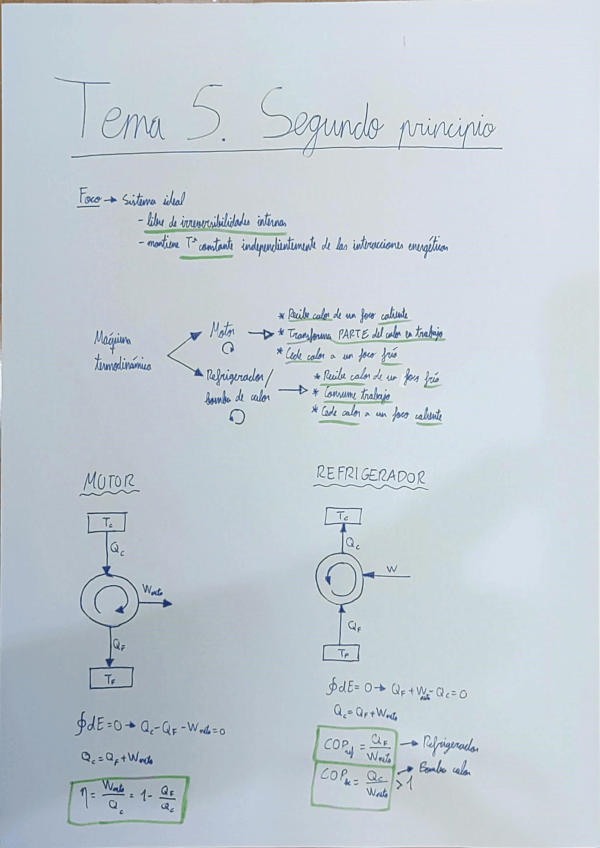 Tema 5. Segundo principio
Foco → Sistema ideal
- libre de irreversibilidades internas
- mantiene Tª constante independientemente de las interacciones energéticas
Máquina
termodinámica
Motor
* Recibe calor de un foco caliente
* Transforma PARTE del calor en trabajo
* Cede calor a un foco frío
Refrigerador/
bomba de calor
* Recibe calor de un foco frío
* Consume trabajo
* Cede calor a un foco caliente
MOTOR
T_C
Q_C
W_neto
Q_F
T_F
∮dE=0 → Q_C-Q_F-W_neto=0
Q_C=Q_F+W_neto
η = W_neto/Q_C = 1 - Q_F/Q_C
REFRIGERADOR
T_C
Q_C
W
Q_F
T_F
∮dE=0 → Q_F+W_neto-Q_C=0
Q_C=Q_F+W_neto
COP_ref = Q_F/W_neto → Refrigerador
COP_bc = Q_C/W_neto > 1 → Bomba calor